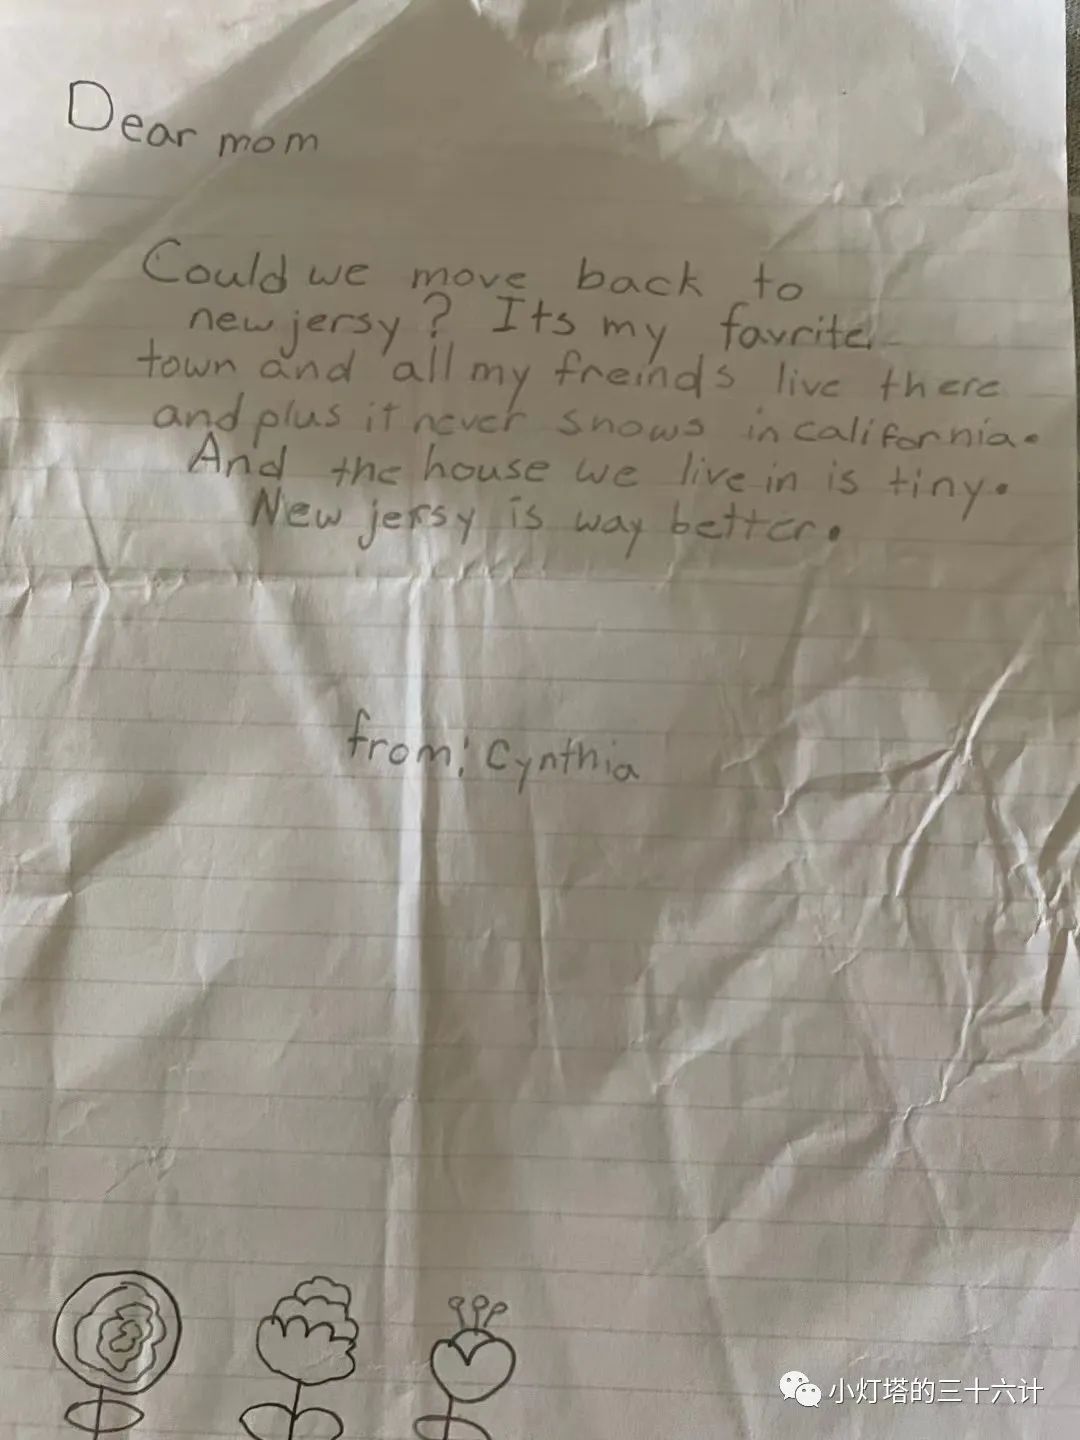 Dear mom
Could we move back to
new jersy? Its my favrite
town and all my freinds live there
and plus it never snows in california.
And the house we live in is tiny.
New jersy is way better.
from: Cynthia
小灯塔的三十六计